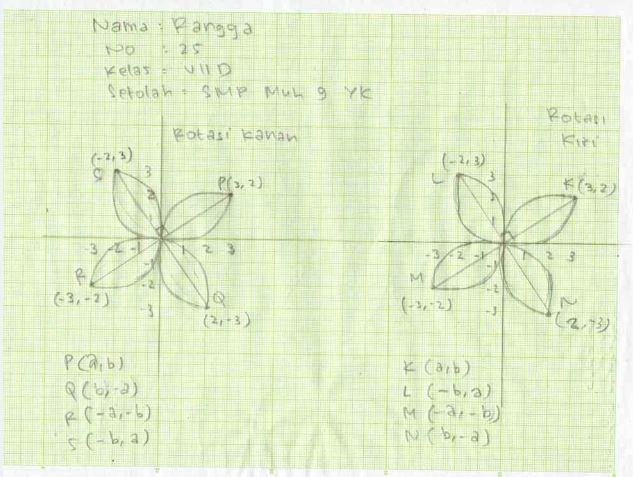 Nama : Rangga
No : 25
Kelas : VII D
Sekolah : SMP Muh 9 YK
Rotasi Kanan
(-2, 3)
S
P(3, 2)
3
2
1
-3 -2 -1 1 2 3
-1
-2
-3
R
(-3, -2)
Q
(2, -3)
P(a, b)
Q(b, -a)
R(-a, -b)
S(-b, a)
Rotasi
Kiri
(-2, 3)
L
K(3, 2)
3
2
1
-3 -2 -1 1 2 3
-1
-2
-3
M
(-3, -2)
N
(2, -3)
K (a, b)
L (-b, a)
M (-a, -b)
N (b, -a)